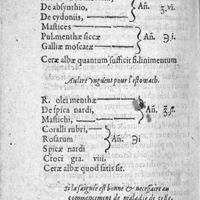 De absynthio, } Añ. ʒ.vi.
De cydoniis,
Mastices
Pul.menthæ siccæ } Añ. ℈ i.
Galliæ moscatæ
Ceræ albæ quantum sufficit fi.linimentum
Aultre unguent pour l'estomach.
R. olei menthæ
De spica nardi, } Añ. ℥ß.
Mastichi,
Coralli rubri,
Rosarum } Añ. ℈i
Spicæ nardi
Croci gra. viii.
Ceræ albæ quod satis sit.
Si la saignée est bonne & necessaire au
commencement de maladie de teste,